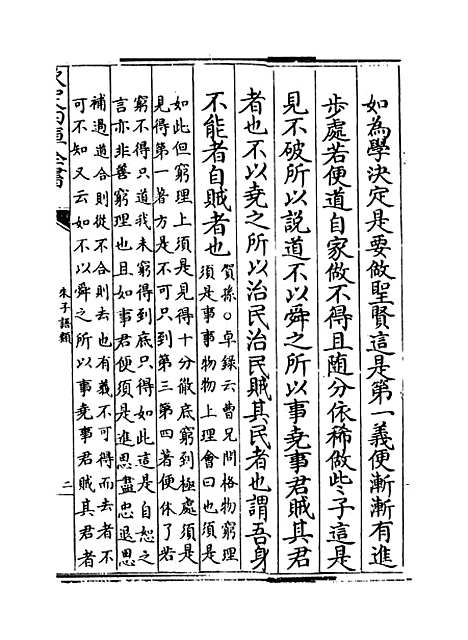 如為學決定是要做聖賢這是第一義便漸漸有進
步處若便道自家做不得且随分依稀做些子這是
見不破所以說道不以舜之所以事堯事君賊其君
者也不以堯之所以治民治民賊其民者也謂吾身
不能者自賊者也
賀孫○卓錄云曹兄問格物窮理
須是事事物物上理會曰也須是
如此但窮理上須是見得十分徹底窮到極處須是
見得第一著方是不可只到第三第四著便休了若
窮不得只道我未窮得到底只得如此這是自恕之
言亦非善窮理也且如事君便須是進思盡忠退思
補過道合則從不合則去也有義不可得而去者不
可不知又云如不以舜之所以事堯事君賊其君者
朱子語類
二